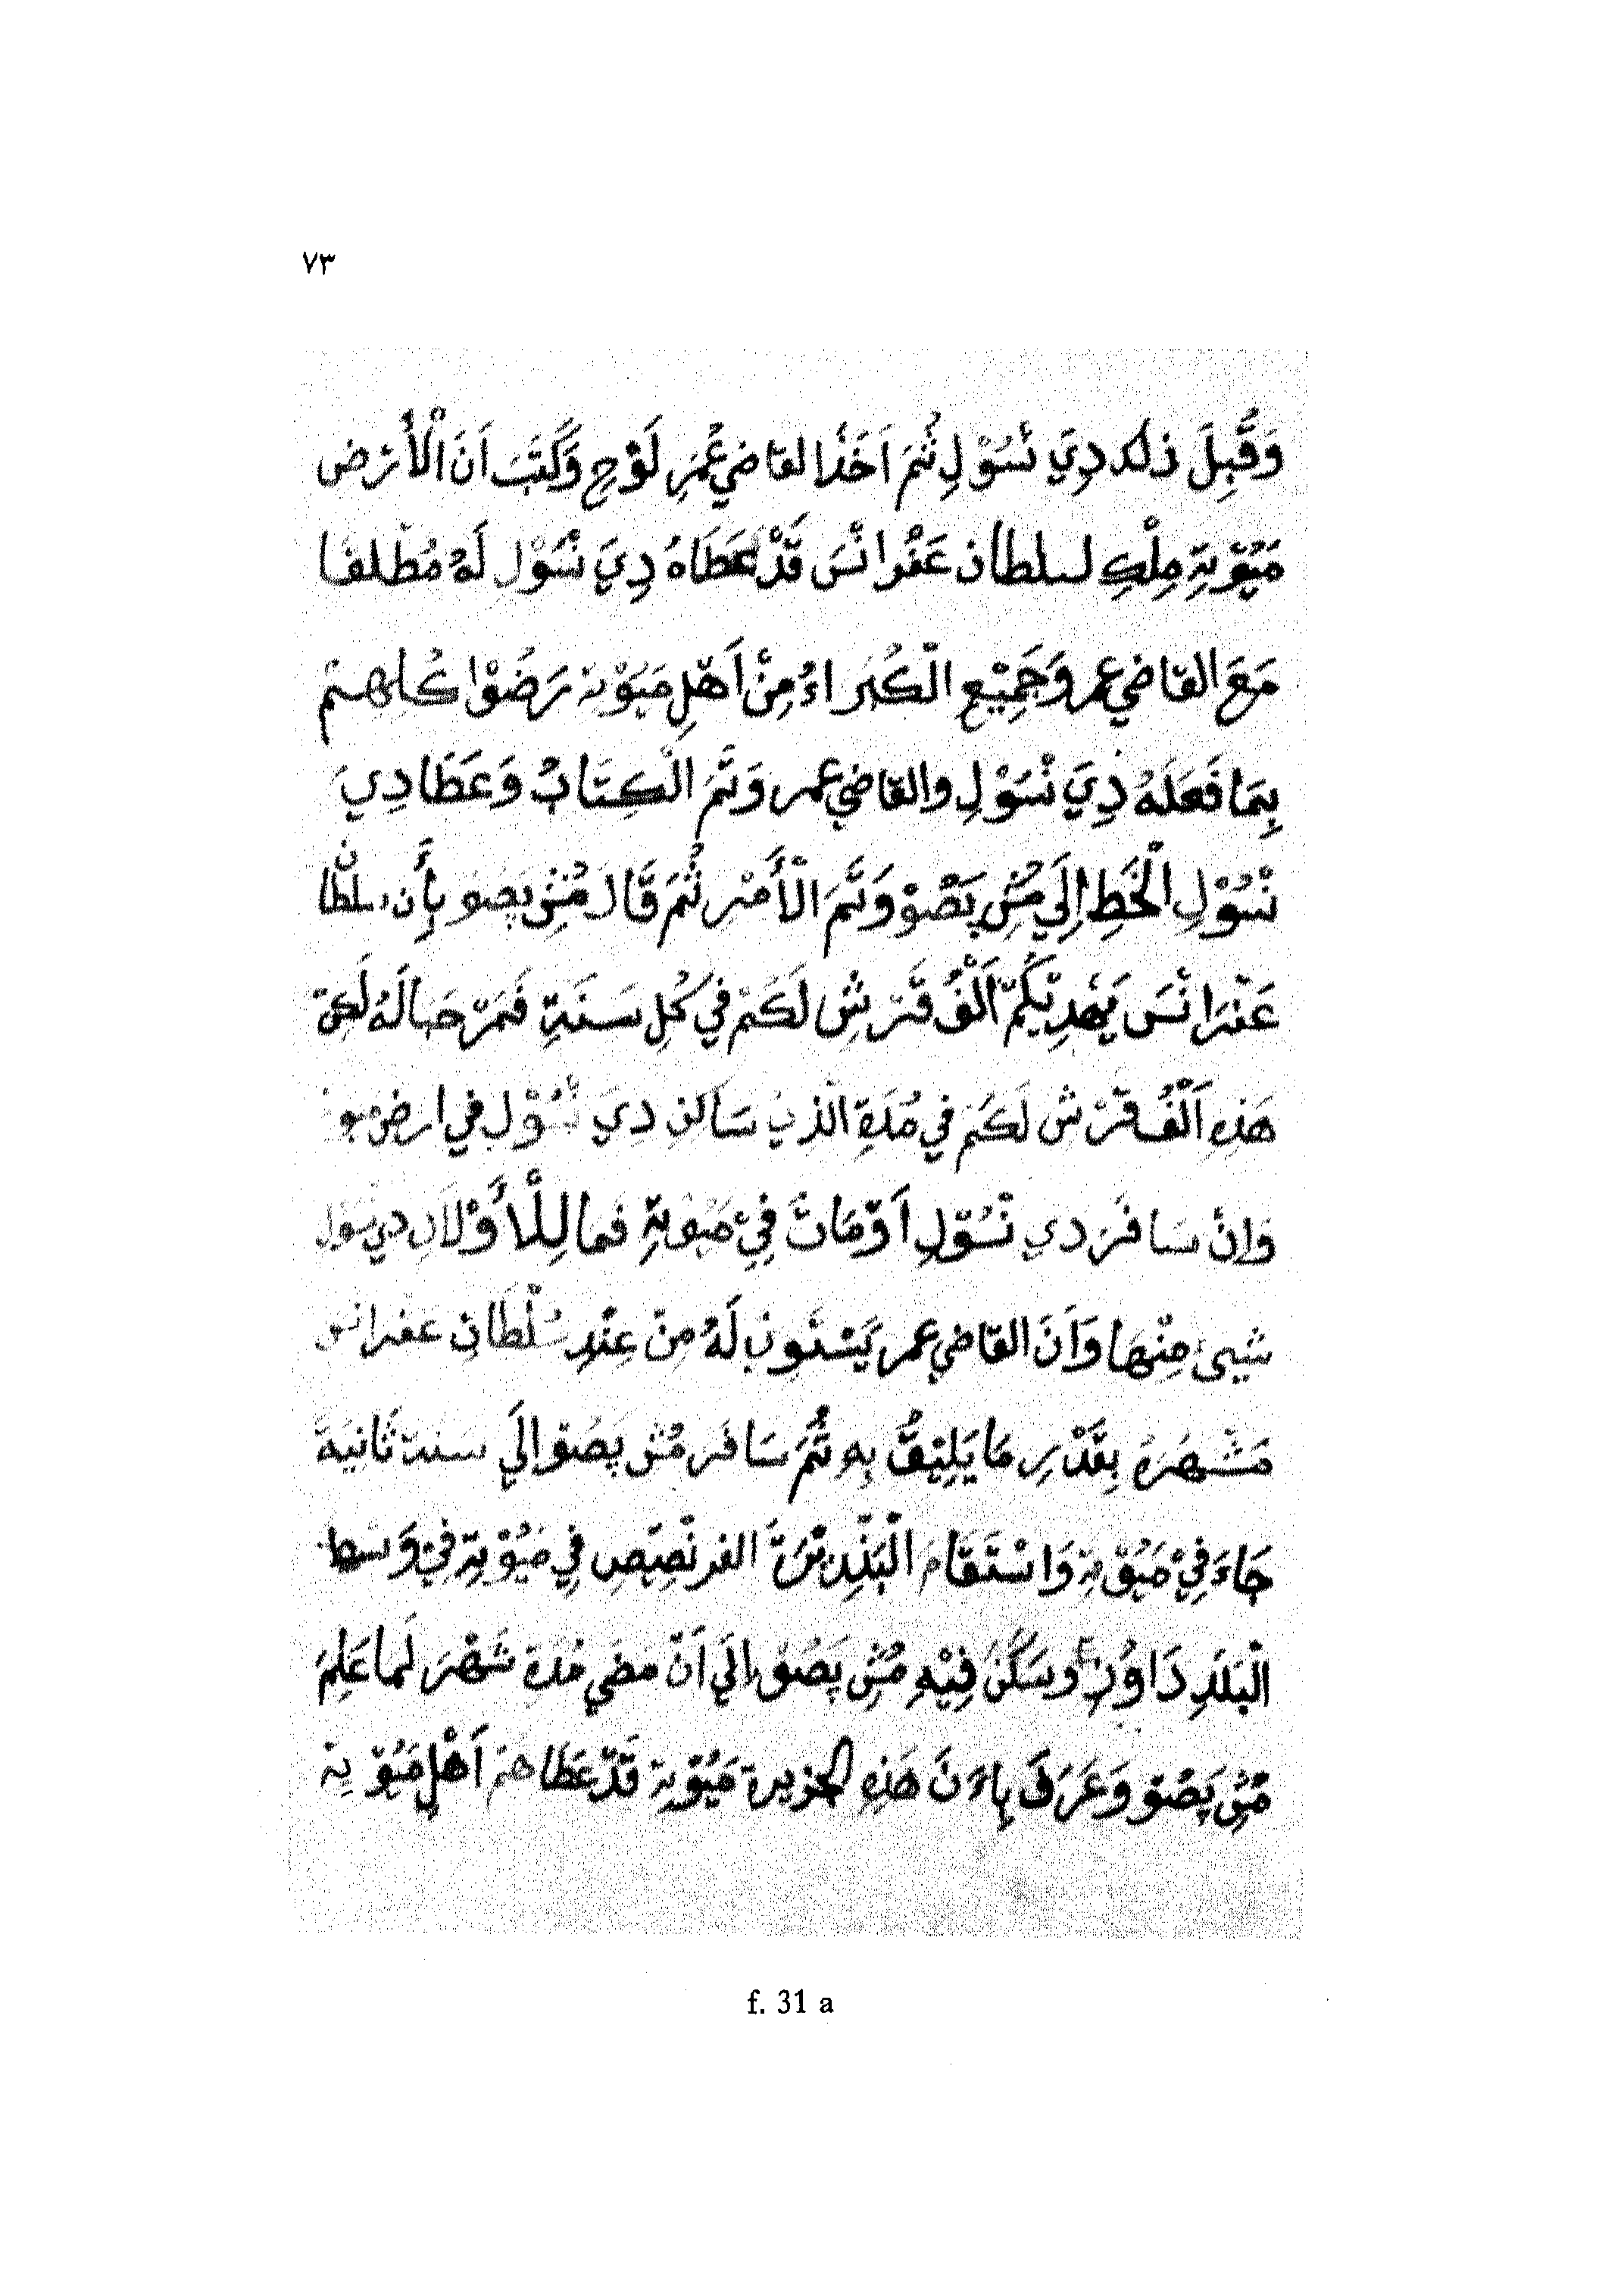 ٧٣
وَقَبِلَ ذلك دِيَ نْسُوْلِ ثُمَ اَخَذَ القاضي عُمَرِ لَوْحِ وَكَتَبَ اَنَ الْأَرْض
مَيُوْتِة مِلْكِ لسلطان عَفْرانْسَ قَدْ عَطَاهُ دِيَ نْسُوْل لَهُ مُطْلقا
مَعَ القاضي عمر وَجَمِيْعِ الْكُبَراءُ مِنْ اَهْلِ مَيُوْتة رَضُوْا كُلهم
بِمَا فَعَلَهُ دِيَ نْسُوْلِ والقاضي عمر وَتَمَ الْكِتَابُ وَعَطَا دِيَ
نْسُوْلِ الْخَطِ إِلَي مُسْ پَصُوْ وَتَمَ الْأَمْر ثُمَ قَالَ مُسْ پصو بِأَن سلطان
عَفْرَانْسَ يَهْدِيْكُمْ اَلْفُ قَرْشِ لَكُمْ فِي كُلِ سَنَةِ فَمَرْحبا لَهُ لَكِنْ
هَذِهِ اَلْفُ قَرْش لَكُمْ فِي مُدَةِ الْذِي سَاكِن دِيَ نْسُوْل فِي ارض
وَإِنْ سَافَرَ دي نْسُوْلِ اَوْمَاتَ فِيْ مَيُوْتِةِ فما لِلْأَوْلَادِ دي نسول
شيئ مِنْهَا وَاَنَ القاضي عمر يَسْتَون لَهُ مِنْ عِنْدِ سُلْطَانِ عفرانس
مَشْهَرَهُ بِقَدْرِ مَا يَلِيْقُ بِهِ ثُمَ سَافَر مُسْ پَصُوْ إِلَي سَنة ثَانِيَة
جَاءَ فِيْ مَيُوْتة وَاسْتَقَامَ الْبَنْدِيْرَة الفرنْصِيْصِ فِي مَيُوْتِة فِيْ وَسط
الْبَلَدِ دَاوُنِ وسَكَنَ فِيْهِ مُسْ پَصُوْ إِلَي اَنْ مضي مُدَة شَهْرَ لَما عَلِمَ
مُسْ پَصُوْ وَعَرَفَ بِاءَنَ هَذِهِ الجزيرة مَيُوْتة قَدْ عَطَاهمْ اَهْلِ مَيُوْتة
f. 31 a